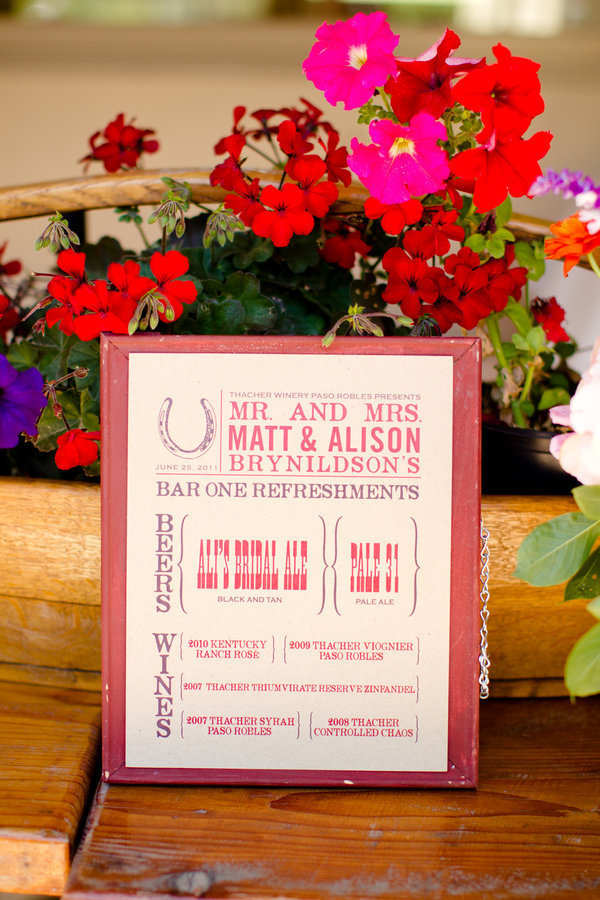 THACHER WINERY PASO ROBLES PRESENTS
MR. AND MRS.
MATT & ALISON
BRYNILDSON'S
JUNE 25, 2011
BAR ONE REFRESHMENTS
BEERS
ALI'S BRIDAL ALE
BLACK AND TAN
PALE 31
PALE ALE
WINES
2010 KENTUCKY
RANCH ROSÉ
2009 THACHER VIOGNIER
PASO ROBLES
2007 THACHER TRIUMVIRATE RESERVE ZINFANDEL
2007 THACHER SYRAH
PASO ROBLES
2008 THACHER
CONTROLLED CHAOS